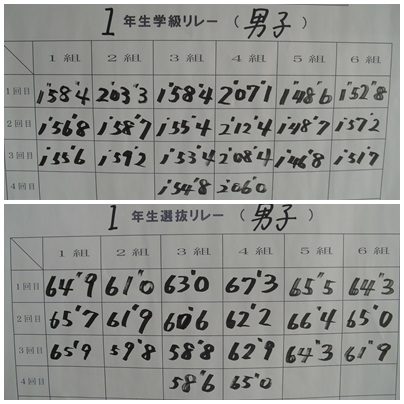 1年生学級リレー(男子)
1組 2組 3組 4組 5組 6組
1回目 1'58"4 2'03"3 1'58"4 2'07"1 1'48"6 1'52"8
2回目 1'56"8 1'58"7 1'55"4 2'12"4 1'48"7 1'57"2
3回目 1'55"6 1'59"2 1'53"4 2'08"4 1'46"8 1'51"7
4回目 1'54"8 2'06"0
1年生選抜リレー(男子)
1組 2組 3組 4組 5組 6組
1回目 64"9 61"0 63"0 67"3 65"5 64"3
2回目 65"7 61"9 60"6 62"2 66"4 65"0
3回目 65"9 59"8 58"8 62"9 64"3 61"9
4回目 58"6 65"0